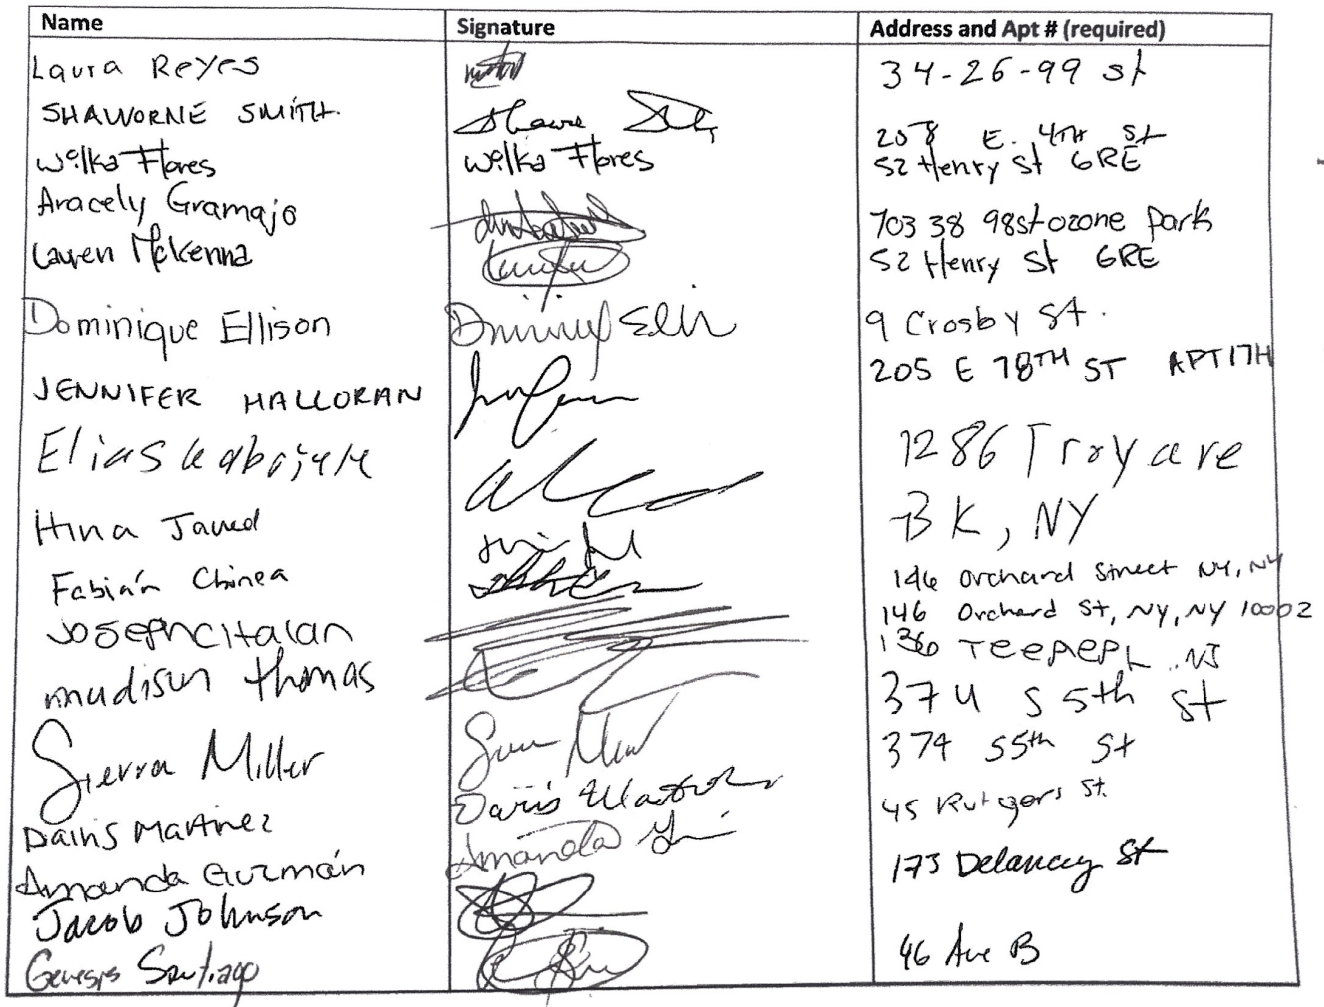 Name Signature Address and Apt # (required)
Laura Reyes 34-26-99 st
SHAWORNE SMITH. Shawe 258 E. 4TH St
Wilka Flores Wilka Flores 52 Henry St GRE
Aracely Gramajo 703 38 98st ozone Park
Lauren McKenna 52 Henry St GRE
Dominique Ellison 9 Crosby St.
JENNIFER HALLORAN 205 E 78TH ST APT 17H
Elias 1286 Troy ave
BK, NY
Hina Javed 146 Orchard Street NY, NY
Fabián Chinea 146 Orchard St, NY, NY 10002
Joseph Citalan 136 NJ
madison thomas 374 S 5th St
Sierra Miller 374 S 5th St
Dairis Martinez Dairis Martinez 45 Rutgers St.
Amanda Guzmán Amanda 173 Delancey St
Jacob Johnson
Genesis Santiago 46 Ave B